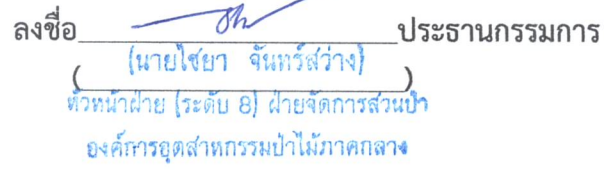 ลงชื่อ ประธานกรรมการ
(นายไชยา จันทร์สว่าง)
( )
หัวหน้าฝ่าย (ระดับ 8) ฝ่ายจัดการสวนป่า
องค์การอุตสาหกรรมป่าไม้ภาคกลาง